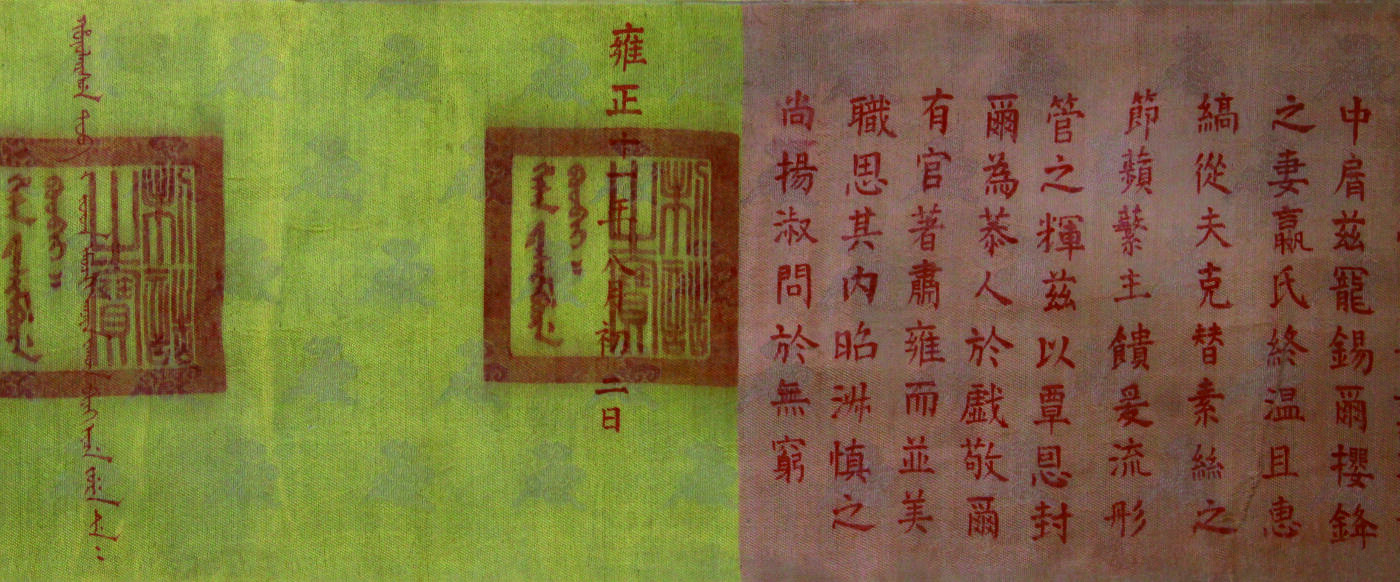 中眉兹寵錫爾櫻鋒
之妻嬴氏終温且惠
縞從夫克替素絲之
節蘋蘩主饋爰流彤
管之輝兹以覃恩封
爾為恭人於戲敬爾
有官著肅雍而並美
職思其内昭淋慎之
尚揚淑問於無窮
雍正十一年八月初二日
制誥之寶
制誥之寶